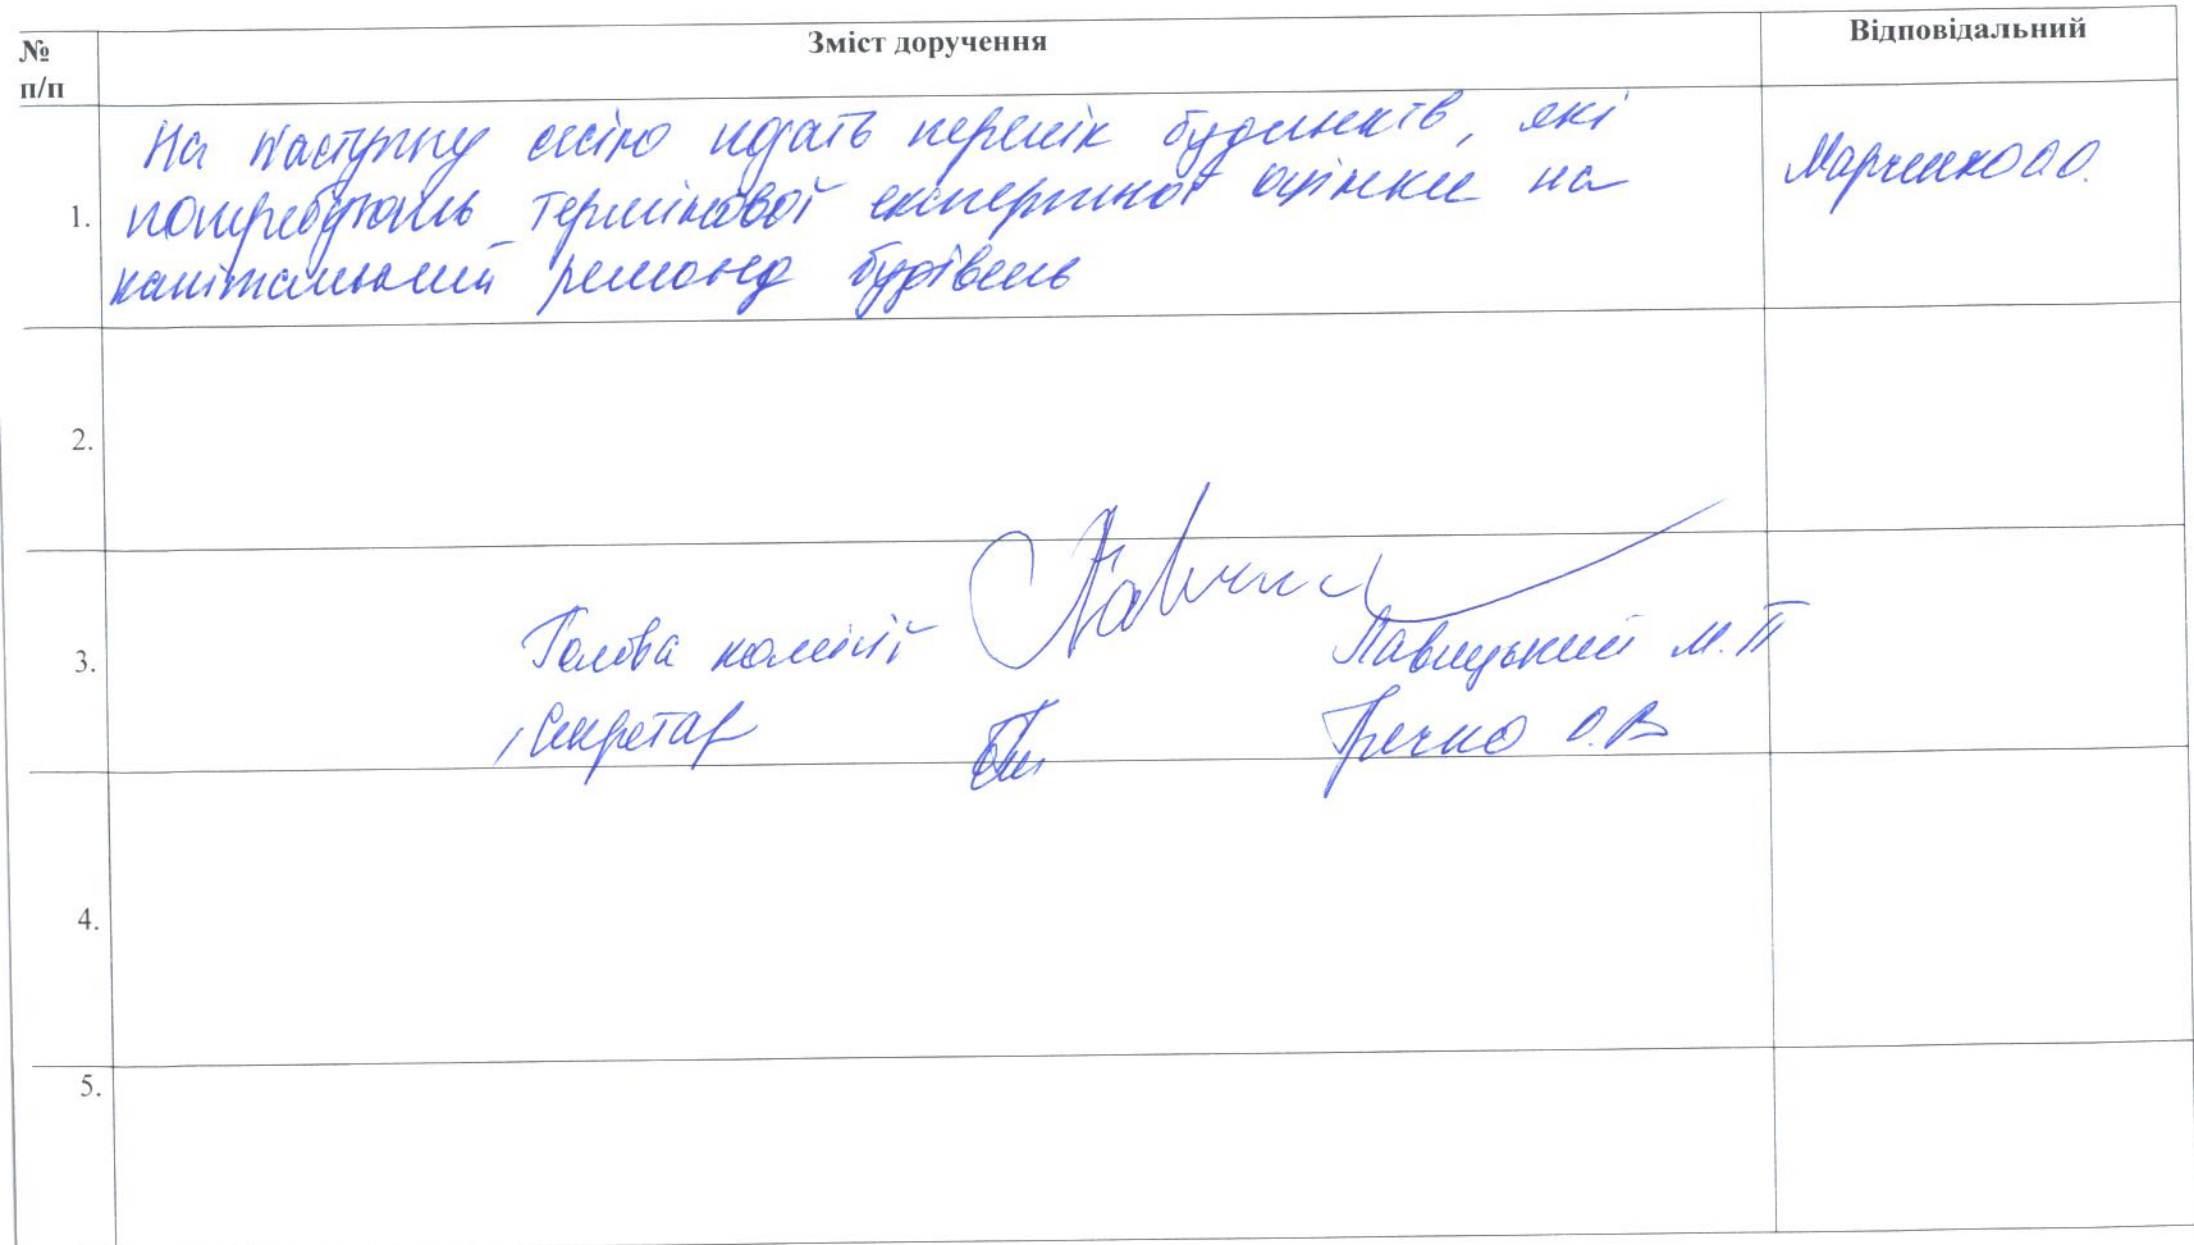 № п/п Зміст доручення Відповідальний
На наступну сесію надать перелік будинків, які
1. потребують термінової експертної оцінки на Марченко О.О.
капітальний ремонд будівель
2.
3. Голова комісії Павицький М.П
Секретар Гречко О.В
4.
5.